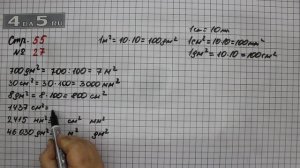 4 DA 5 .RU
Стр. 55
№ 27
1м² = 10·10 = 100дм²
1см = 10мм
1см² = 10·10 = 100мм²
1дм² = 10·10 = 100см²
700дм² = 700:100 = 7м²
30см² = 30·100 = 3000мм²
8дм² = 8·100 = 800см²
1437см² =
2415 мм² см² мм²
46030дм² м² дм²